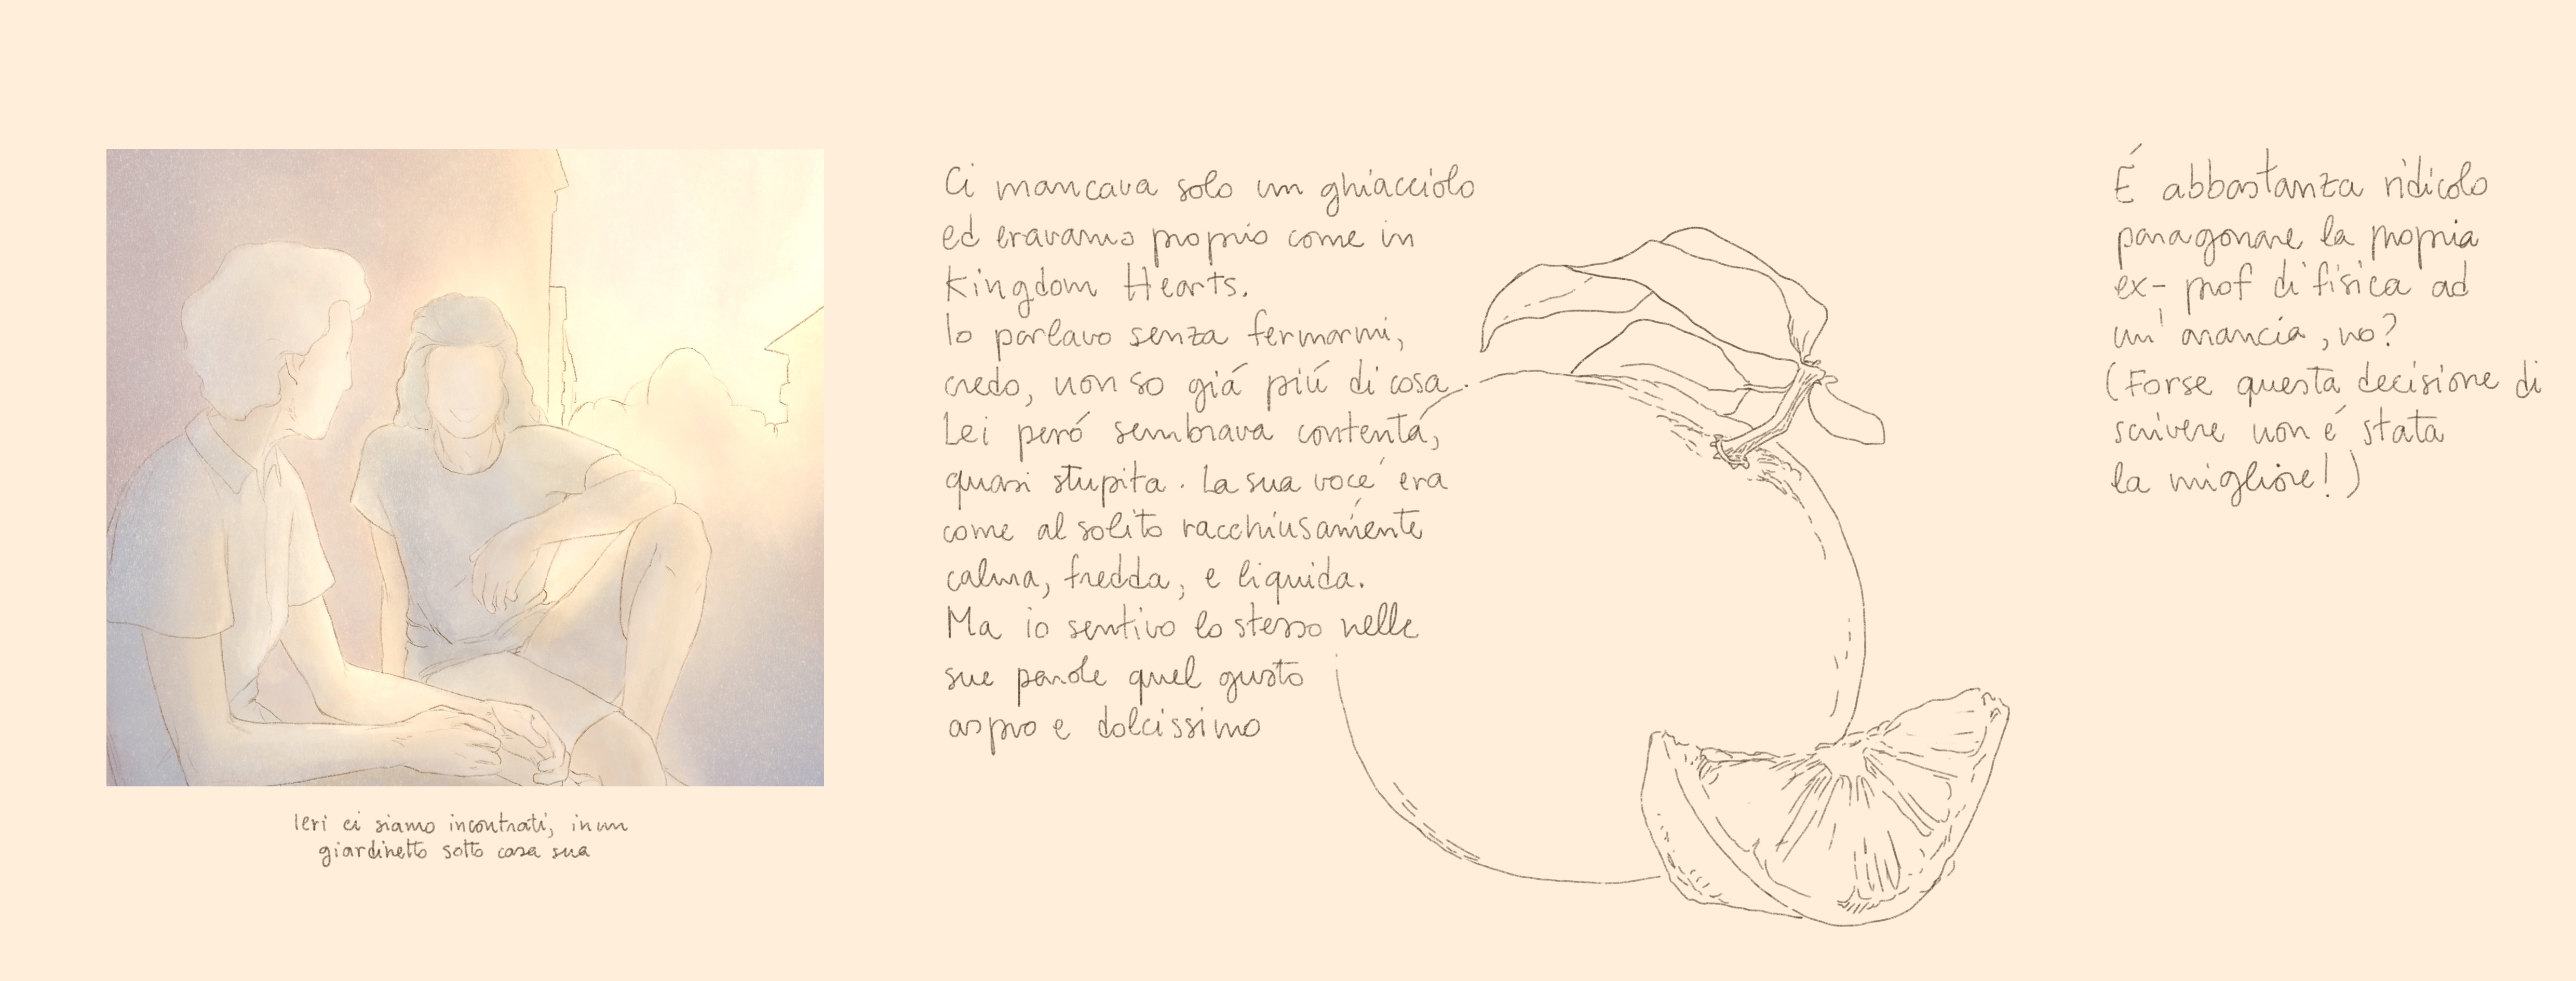 Ieri ci siamo incontrati, in un
giardinetto sotto casa sua
Ci mancava solo un ghiacciolo
ed eravamo proprio come in
Kingdom Hearts.
Io parlavo senza fermarmi,
credo, non so giá piú di cosa.
Lei peró sembrava contenta,
quasi stupita. La sua voce era
come al solito racchiusamente
calma, fredda, e liquida.
Ma io sentivo lo stesso nelle
sue parole quel gusto
aspro e dolcissimo
É abbastanza ridicolo
paragonare la propria
ex-prof di fisica ad
un'arancia, no?
(Forse questa decisione di
scrivere non é stata
la migliore!)